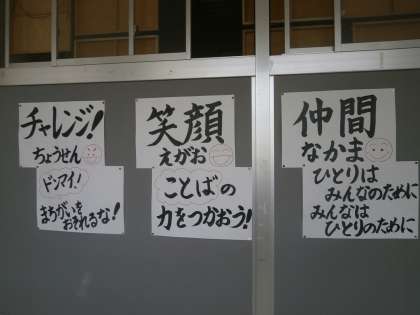 チャレンジ!
ちょうせん
ドンマイ!
まちがいを
おそれるな!
笑顔
えがお
ことばの
力をつかおう!
仲間
なかま
ひとりは
みんなのために
みんなは
ひとりのために